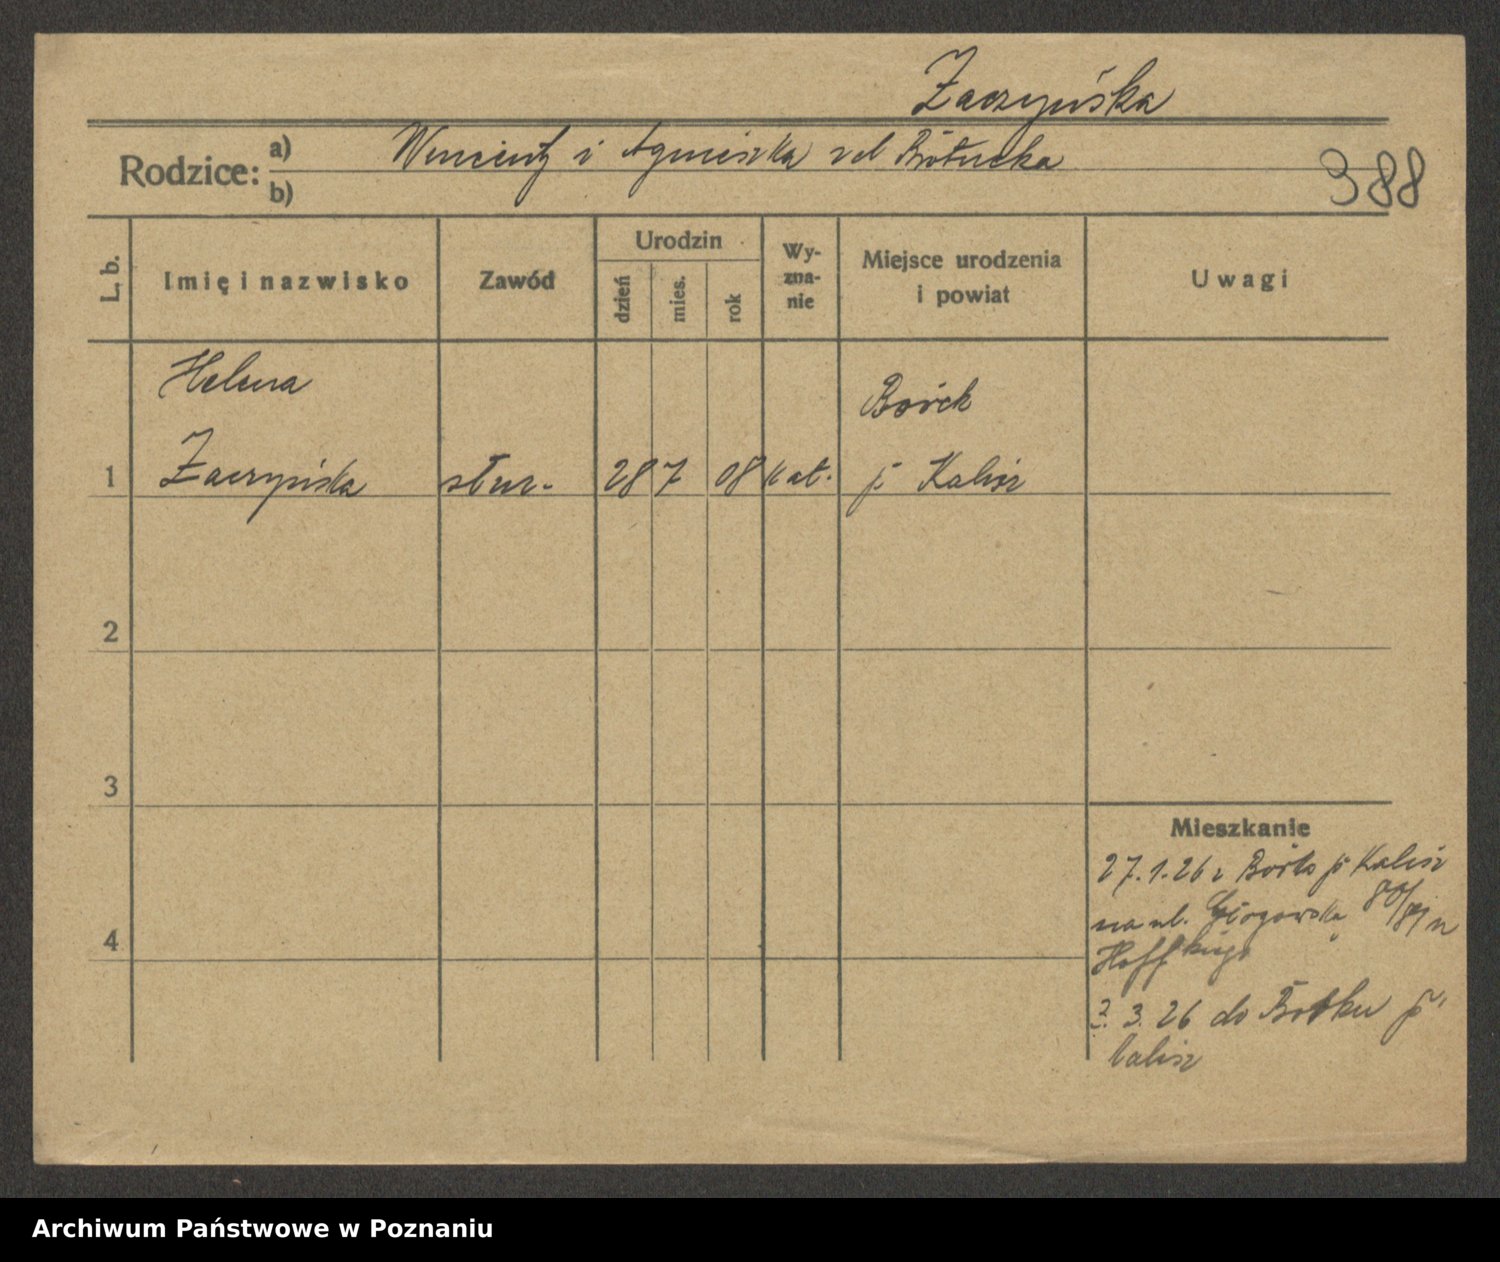 Zaczyńska
Rodzice: a) Wincenty i Agnieszka
b)
388
L. b.
Imię i nazwisko
Zawód
Urodzin
dzień
mies.
rok
Wy-
zna-
nie
Miejsce urodzenia
i powiat
Uwagi
Helena
Borek
1 Zaczyńska służ. 28 7 08 kat. p. Kalisz
2
3
4
Mieszkanie
27.1.26 z Borku p. Kalisz
na ul. Głogowską
3.26 do Borku p.
Kalisz
Archiwum Państwowe w Poznaniu